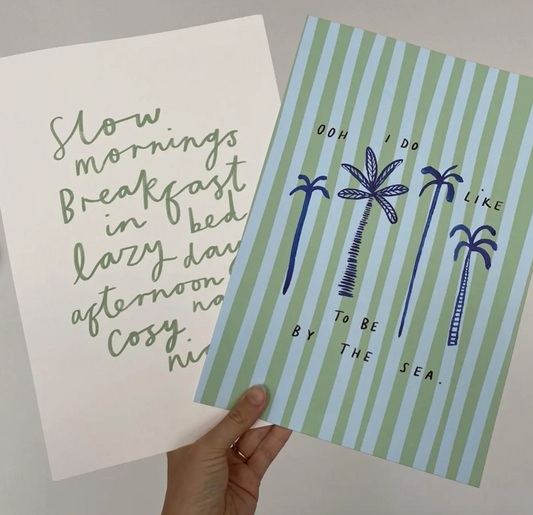 Slow
mornings
Breakfast
in bed
lazy day
afternoon na
Cosy
ni
OOH I DO LIKE
TO BE
BY THE SEA.